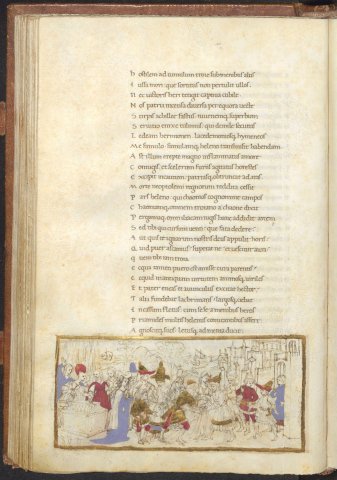 Hostilem ad tumulum troiae sub moenibus altis
Iussa mori: que sortitus non pertulit ullos:
Nec uictoris heri tetigit captiua cubile.
Nos patria incensa diuersa per equora uecte
Stirpis achillee fastus: iuuenemque superbum
Seruitio enixe tulimus: qui deinde secutus
Ledeam hermionem: lacedemoniosque hymeneos
Me famulo famulamque heleno transmisit habendam
Ast illum erepte magno inflammatus amore
Coniugis: et scelerum furiis agitatus horestes
Excipit incautum: patriasque obtruncat ad aras.
Morte neoptolemi regnorum reddita cessit
Pars heleno: qui chaonios cognomine campos
Chaoniamque omnem troiano a chaone dixit
Pergamaque iliacamque iugis hanc addidit arcem
Sed tibi qui cursum uenti: que fata dedere:
Aut quis te ignarum nostris deus appulit horis:
Quid puer ascanius: superat ne et uescitur aura
Quem tibi iam troia
Ecqua tamen puero est amisse cura parentis:
Ecquid in antiquam uirtutem animosque uiriles
Et pater eneas et auunculus excitat hector:
Talia fundebat lachrimans: longosque ciebat
Incassum fletus: cum sese a menibus heros
Priamides multis helenus comitantibus affert
Agnoscitque suos: letusque ad menia ducit